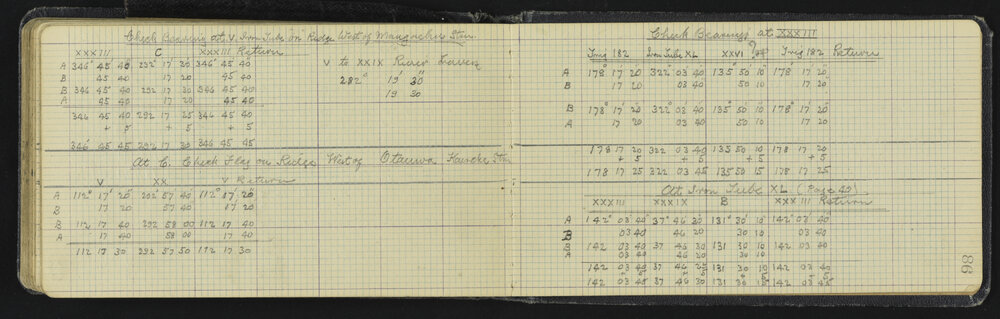 Check Bearing at V Iron Tube on Ridge West of Stn.
XXXIII C XXXIII Return
A 346° 45 40 292° 17 20 346 45 40
B 45 40 17 20 45 40
B 346 45 40 292 17 30 346 45 40
A 45 40 17 20 45 40
346 45 40 292 17 25 346 45 40
+ 5 + 5 + 5
346 45 45 292 17 30 346 45 45
V to XXIX River Traverse
282° 19' 30"
19 30
At C. Check Flag on Ridge West of Otauwa Stn
V XX V Return
A 112° 17' 20" 202° 57 40 112° 17' 20"
B 17 20 57 40 17 20
B 112 17 40 292 58 00 112 17 40
A 17 40 58 00 17 40
112 17 30 292 57 50 112 17 30
Check Bearings at XXXIII
Trig 182 Iron Tube XL XXVI ? Trig 182 Return
A 178° 17 20 322° 03 40 135° 50 10" 178° 17' 20
B 17 20 03 40 50 10 17 20
B 178° 17' 20 322° 03 40 135° 50 10 178° 17' 20
A 17 20 03 40 50 10 17 20
178 17 20 322 03 40 135 50 10 178 17 20
+ 5 + 5 + 5 + 5
178 17 25 322 03 45 135 50 15 178 17 25
At Iron Tube XL (Page 40)
XXXIII XXXIX B XXXIII Return
A 142° 03' 40" 37° 46 30" 131° 30' 10" 142° 03' 40"
B 03 40 46 20 30 10 03 40
B 142 03 40 37 46 30 131 30 10 142 03 40
A 03 40 46 20 30 10
142 03 40 37 46 25 131 30 10 142 03 40
5 5 5 5
142 03 45 37 46 30 131 30 15 142 03 45
86